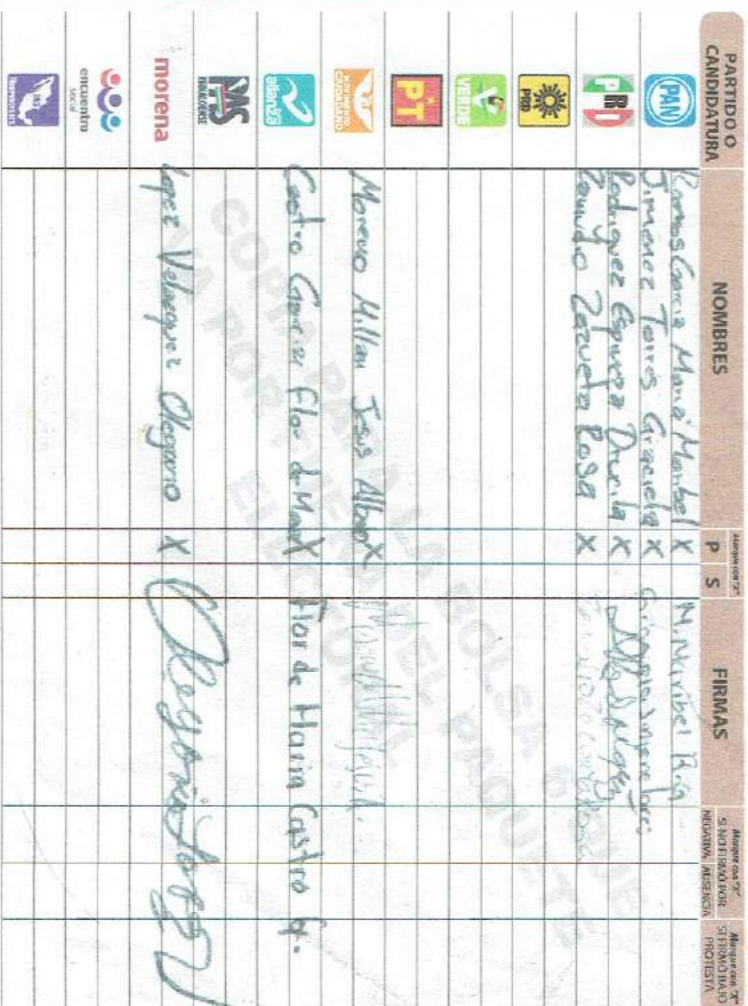 PARTIDO O CANDIDATURA
NOMBRES
Marque con "X"
P S
FIRMAS
Marque con "X" SI NO FIRMÓ POR
NEGATIVA AUSENCIA
Marque con "X" SI FIRMÓ BAJO PROTESTA
PAN
Ramos Garcia Maria Maribel X M. Maribel R.
Jimenez Torres Graciela X
PRI
Rodriguez Esparza Drucila X
Zamudio Zazueta Rosa X
PRD
VERDE
PT
MOVIMIENTO CIUDADANO
Moreno Millan Jesus X
alianza
Castro Garcia Flor de Maria X Flor de Maria Castro G.
PAS
SINALOENSE
morena
Lopez Velazquez Olegario X Olegario Lopez V
encuentro social
COPIA PARA LA BOLSA QUE VA POR FUERA DEL PAQUETE ELECTORAL